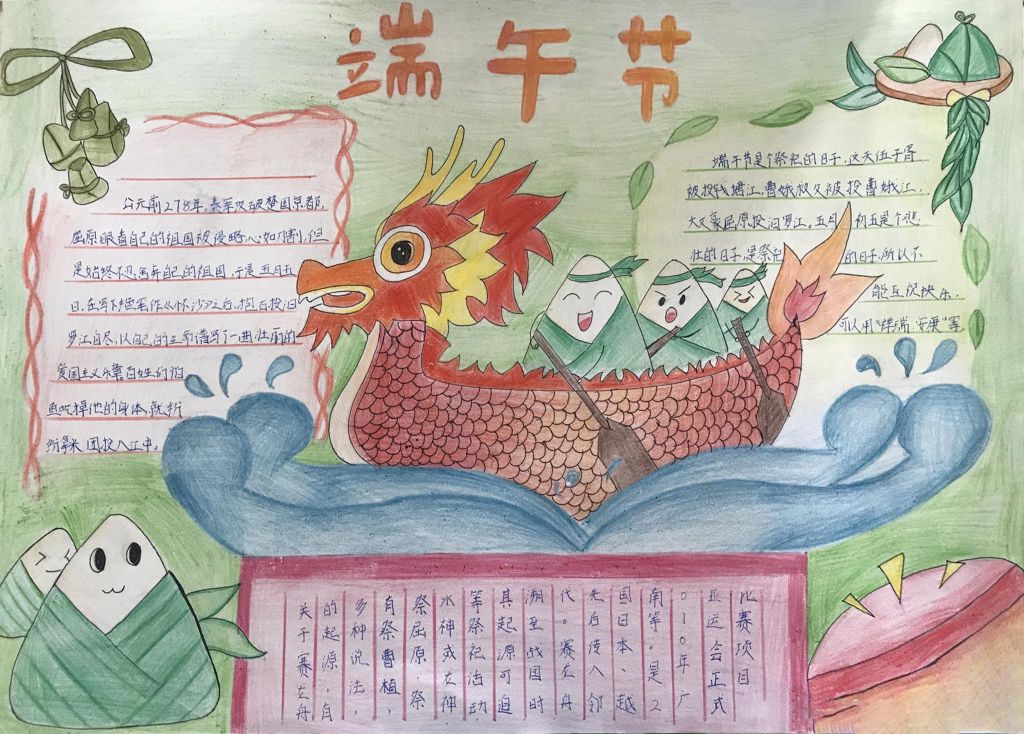 端午节
公元前278年,秦军攻破楚国京都,
屈原眼看自己的祖国被侵略,心如刀割,但
是始终不忍离弃自己的祖国,于是五月五
日,在写下绝笔作《怀沙》之后,抱石投汨
罗江自尽,以自己的生命谱写了一曲壮丽的
爱国主义乐章百姓们怕
鱼吃掉他的身体,就折
米团投入江中。
端午节是个祭祀的日子,这天伍子胥
被投钱塘江,曹娥救父被投曹娥江,
大文豪屈原投汨罗江。五月初五是个悲
壮的日子,是祭祀的日子,所以不
能互祝快乐,
可以用"祥瑞、安康"等
关于赛龙舟
的起源,有
多种说法,
有祭曹植,
祭屈原,祭
水神或龙神
等祭祀活动,
其起源可追
溯至战国时
代。赛龙舟
先后传入邻
国日本、越
南等。是2
010年广
亚运会正式
比赛项目